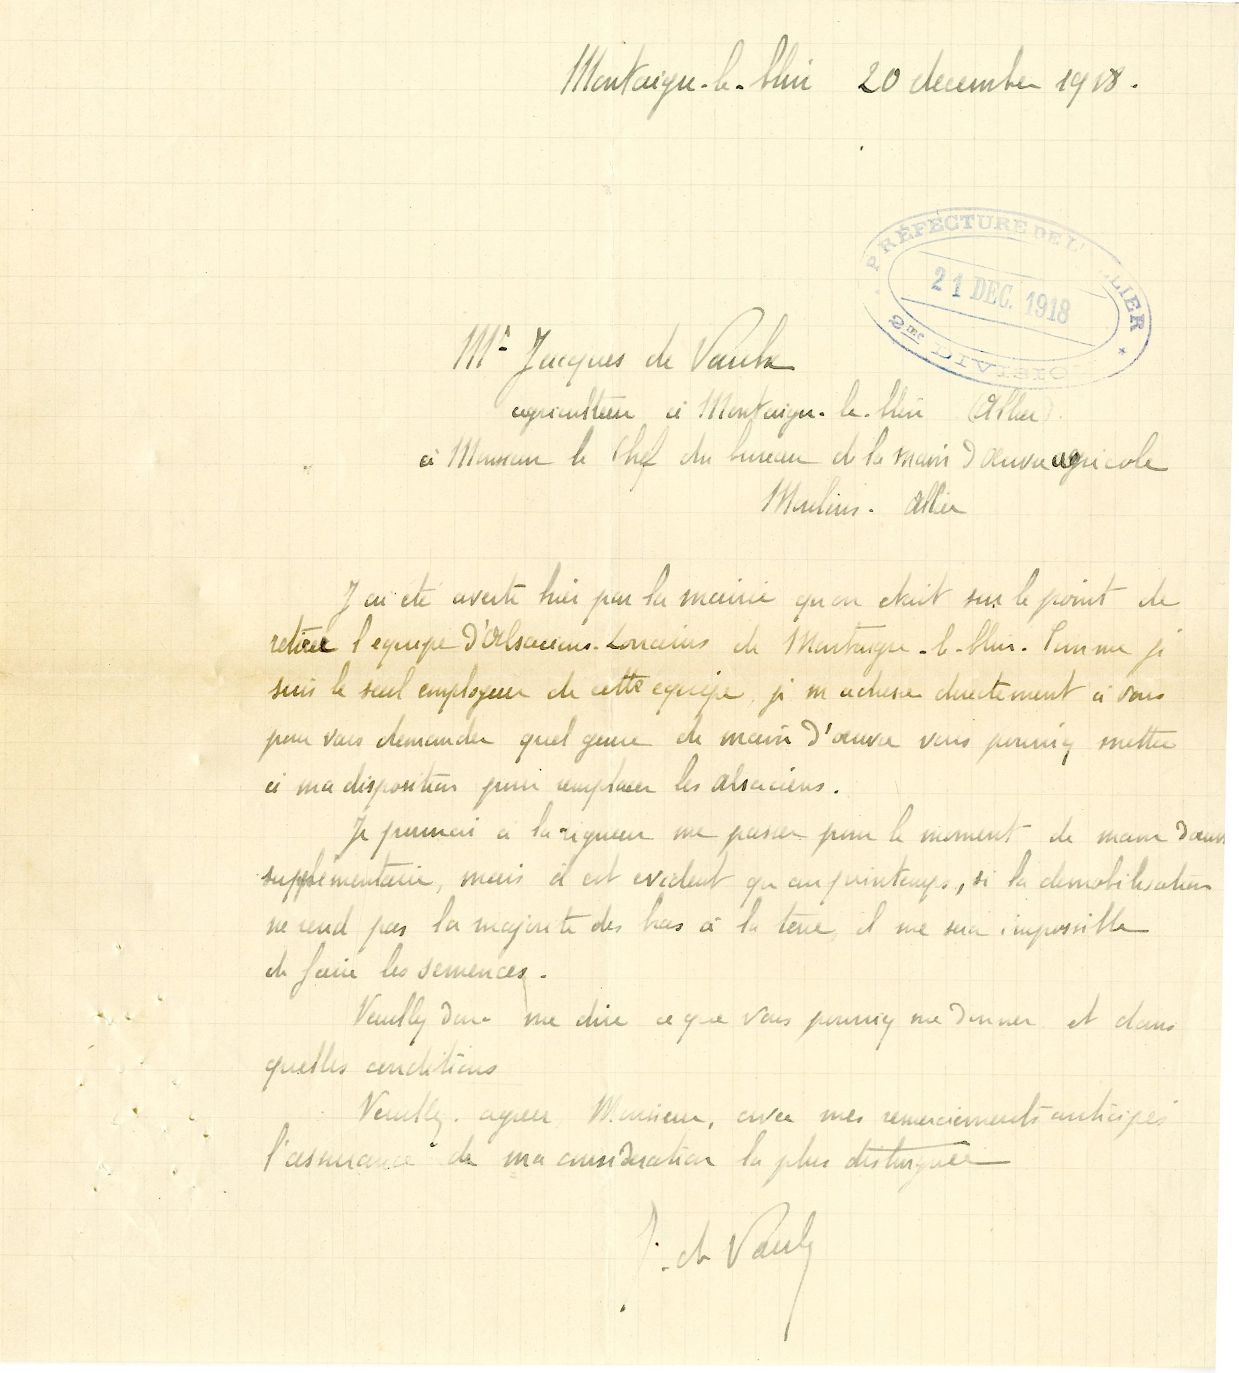 Montaigu-le-blin 20 decembre 1918.
PRÉFECTURE DE L' LLIER
21 DEC. 1918
2me DIVISIO
Mr Jacques de Vaulx
agriculteur à Montaigu-le-blin (Allier).
à Monsieur le Chef du bureau de la main d'œuvre agricole
Moulins. Allier
J'ai été averti hier par la mairie qu'on était sur le point de
retirer l'équipe d'Alsaciens-Lorrains de Montaigu-le-blin. Comme je
suis le seul employeur de cette equipe, je m'adresse directement à vous
pour vous demander quel genre de main d'œuvre vous pourriez mettre
à ma disposition pour remplacer les alsaciens.
Je pourrai à la rigueur me passer pour le moment de main d'œuvre
supplémentaire, mais il est evident qu'au printemps, si la demobilisation
ne rend pas la majorité des bras à la terre, il me sera impossible
de faire les semences.
Veuillez donc me dire ce que vous pourriez me donner et dans
quelles conditions
Veuillez agréer Monsieur, avec mes remerciements anticipés
l'assurance de ma considération la plus distinguée
J. de Vaulx